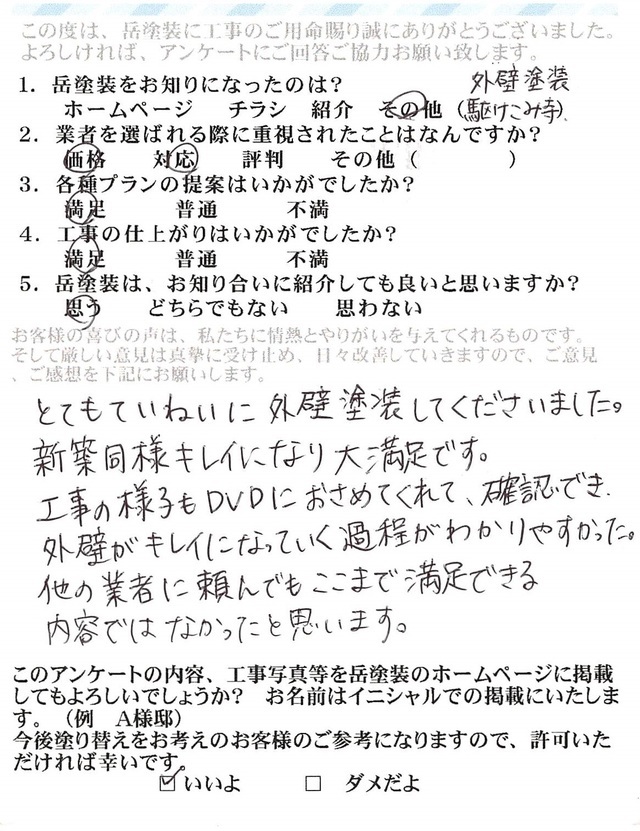 この度は、岳塗装に工事のご用命賜り誠にありがとうございました。
よろしければ、アンケートにご回答ご協力お願い致します。
1．岳塗装をお知りになったのは？
外壁塗装
ホームページ　チラシ　紹介　その他（駆けこみ寺）
2．業者を選ばれる際に重視されたことはなんですか？
価格　対応　評判　その他（　　　）
3．各種プランの提案はいかがでしたか？
満足　普通　不満
4．工事の仕上がりはいかがでしたか？
満足　普通　不満
5．岳塗装は、お知り合いに紹介しても良いと思いますか？
思う　どちらでもない　思わない
お客様の喜びの声は、私たちに情熱とやりがいを与えてくれるものです。
そして厳しい意見は真摯に受け止め、日々改善していきますので、ご意見
、ご感想を下記にお願いします。
とてもていねいに外壁塗装してくださいました。
新築同様キレイになり大満足です。
工事の様子もDVDにおさめてくれて、確認でき、
外壁がキレイになっていく過程がわかりやすかった。
他の業者に頼んでもここまで満足できる
内容ではなかったと思います。
このアンケートの内容、工事写真等を岳塗装のホームページに掲載
してもよろしいでしょうか？　お名前はイニシャルでの掲載にいたしま
す。（例　A様邸）
今後塗り替えをお考えのお客様のご参考になりますので、許可いた
だければ幸いです。
☑いいよ　□　ダメだよ